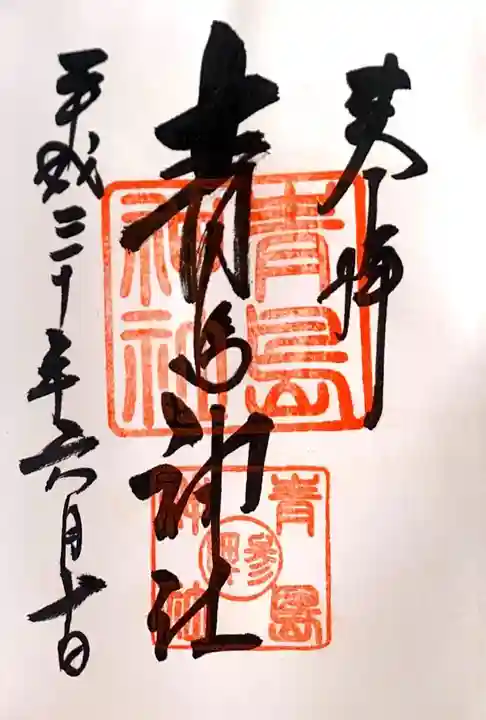 奉拝
青島神社
平成三十年六月十日
青島
神社
青島
神社
参拝